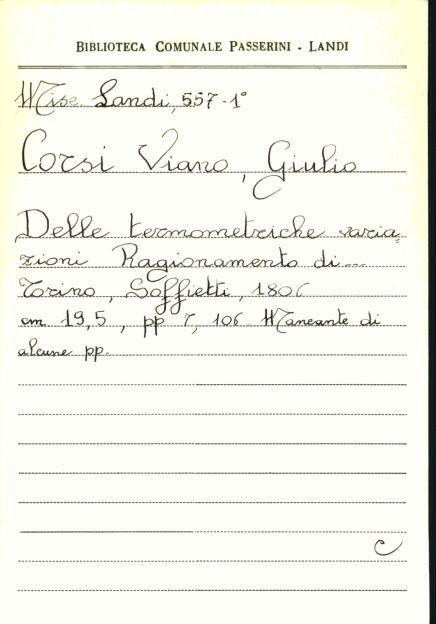 BIBLIOTECA COMUNALE PASSERINI - LANDI
Misc. Landi, 557-1°
Corsi Viano, Giulio
Delle termometriche varia=
zioni Ragionamento di...
Torino, Soffietti, 1806
cm 19,5, pp 7, 106 Mancante di
alcune pp.
C